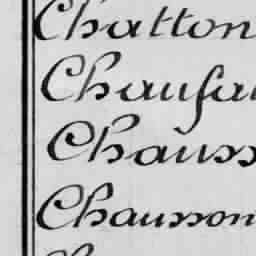 Chatton
Chaufa
Chauss
Chausson